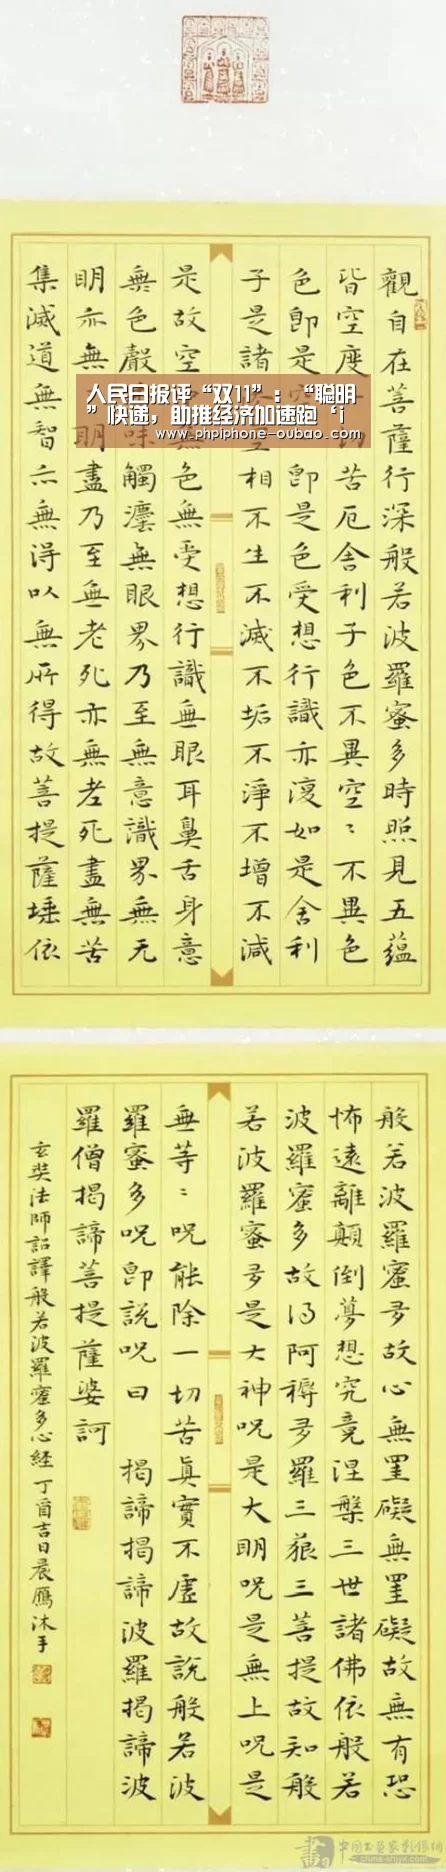 觀自在菩薩行深般若波羅蜜多時照見五蘊
皆空度 苦厄舍利子色不異空〻不異色
色即是 即是色受想行識亦復如是舍利
子是諸 相不生不滅不垢不淨不增不減
是故空 色無受想行識無眼耳鼻舌身意
無色聲 味觸塵無眼界乃至無意識界無无
明亦無 明盡乃至無老死亦無老死盡無苦
集滅道無智亦無得以無所得故菩提薩埵依
人民日报评“双11”：“聪明
”快递，助推经济加速跑‘i
www.phpiphone-oubao.com
般若波羅蜜多故心無罣礙無罣礙故無有恐
怖遠離顛倒夢想究竟涅槃三世諸佛依般若
波羅蜜多故得阿耨多羅三藐三菩提故知般
若波羅蜜多是大神咒是大明咒是無上咒是
無等〻咒能除一切苦真實不虛故說般若波
羅蜜多咒即說咒曰 揭諦揭諦波羅揭諦波
羅僧揭諦菩提薩婆訶
玄奘法師詔譯般若波羅蜜多心經 丁酉吉日晨雁沐手